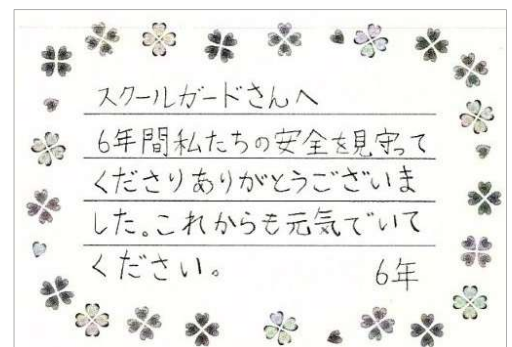 スクールガードさんへ
6年間私たちの安全を見守って
くださりありがとうございま
した。これからも元気でいて
ください。 6年